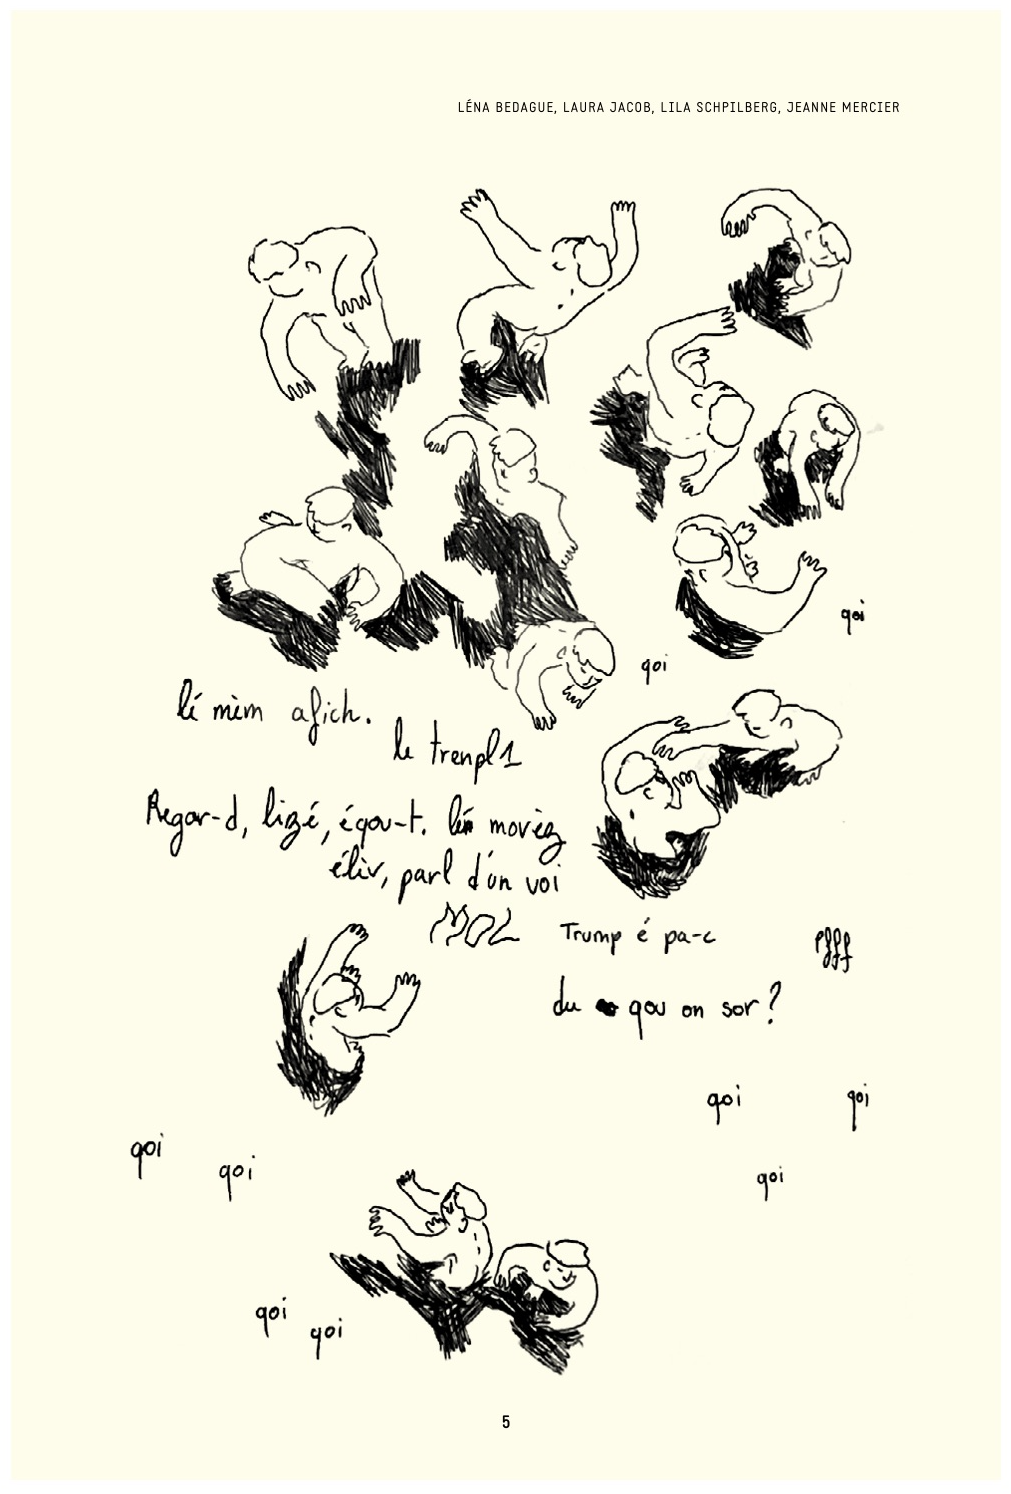 LÉNA BEDAGUE, LAURA JACOB, LILA SCHPILBERG, JEANNE MERCIER
qoi
qoi
lé mèm afich.
le trenpl1
Regar-d, lizé, égou-t. lé movèz
éliv, parl d'un voi
MOL
Trump é pa-c
pfff
du qou on sor ?
qoi
qoi
qoi
qoi
qoi
qoi
qoi
5